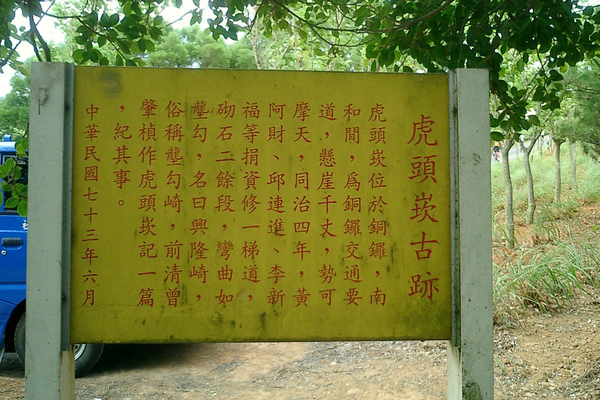 虎頭崁古跡
虎頭崁位於銅鑼，南
和間，為銅鑼交通要
道，懸崖千丈，勢可
摩天，同治四年，黃
阿財、邱連進、李新
福等捐資修一梯道，
砌石二餘段，彎曲如
壟勾，名曰興隆崎，
俗稱壟勾崎，前清曾
肇楨作虎頭崁記一篇
，紀其事。
中華民國七十三年六月